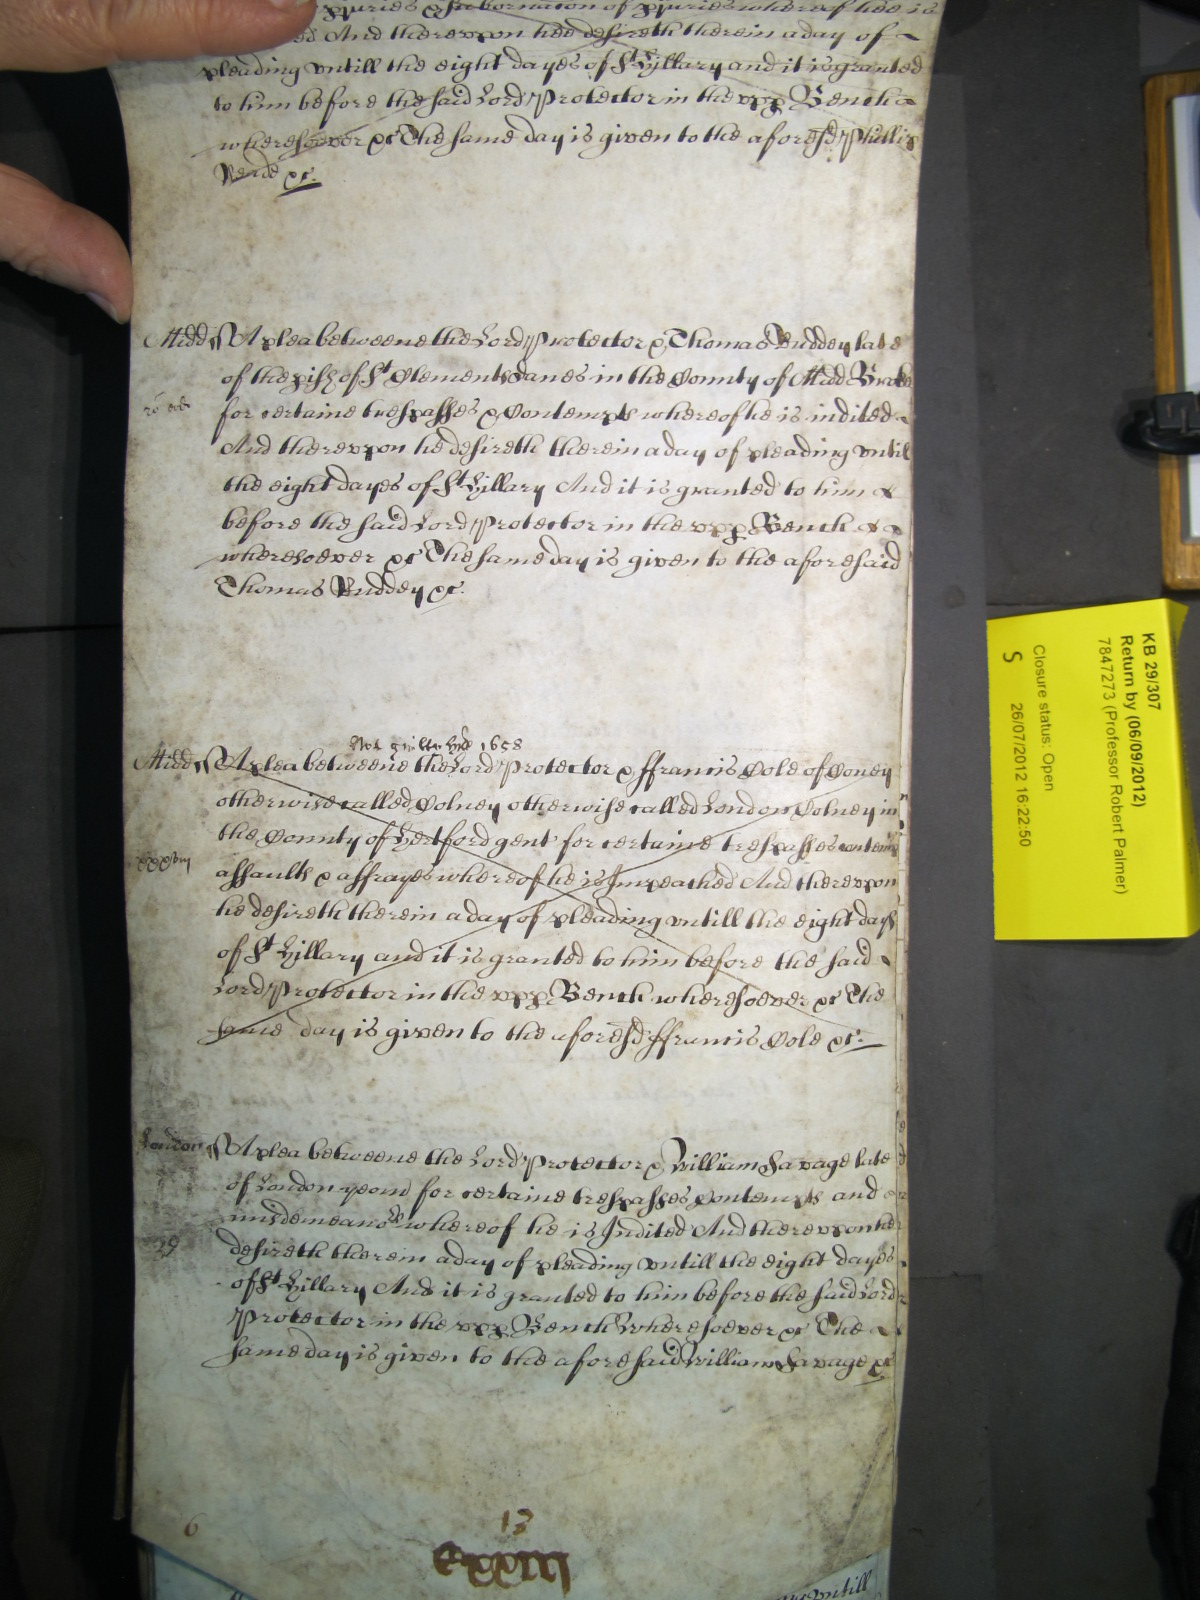 p[er]juries & subornacon of p[er]juries whereof hee is
And therevpon hee desireth therein a day of
pleading vntill the eight dayes of St Hillary and it is granted
to him before the said Lord Protector in the vpp Bench
wheresoever &c The same day is given to the aforesd Phillip
Reade &c.
Midd ss A plea betweene the Lord Protector & Thomas Buddey late
of the pish of St Clements Danes in the County of Midd
for certaine trespasses & Contempts whereof he is indited
And therevpon he desireth therein a day of pleading vntil
the eight dayes of St Hillary And it is granted to him
before the said Lord Protector in the vpp Bench
wheresoever &c The same day is given to the aforesaid
Thomas Buddey &c.
Not guilty 1658
Midd ss A plea betweene the Lord Protector & ffrancis Cole of Coney
otherwise called Colney otherwise called London Colney in
the County of Hertford gent for certaine trespasses contem
xxxviij
assaults & affrayes whereof he is Impeached And therevpon
he desireth therein a day of pleading vntill the eight days
of St Hillary and it is granted to him before the said
Lord Protector in the vpp Bench wheresoever &c The
same day is given to the aforesd ffrancis Cole &c.
London ss A plea betweene the Lord Protector & William Savage late
of London yeom for certaine trespasses Contempts and
misdemeanors whereof he is Indited And therevpon he
39
desireth therein a day of pleading vntill the eight dayes
of St Hillary And it is granted to him before the said Lord
Protector in the vpp Bench Wheresoever &c The
same day is given to the aforesaid William Savage &c
6
13
vntill
KB 29/307
Return by (06/09/2012)
7847273 (Professor Robert Palmer)
Closure status: Open
S 26/07/2012 16:22:50